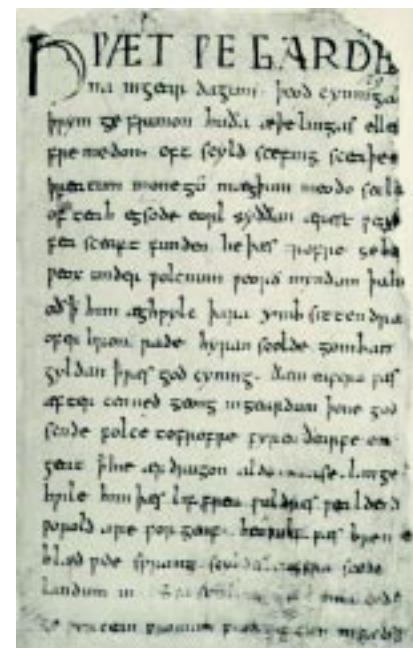 HǷÆT ǷE GARDE
na ingear dagum. þeod cyninga
þrym ge frunon huða æþelingas elle
fre medon. oft scyld scefing sceaþe
þreatum monegū mægþum meodo setla
of teah egsode eorl syððan ærest ƿearð
fea sceaft funden he þæs frofre geba
ƿeox under ƿolcnum ƿeorð myndum þah
oð þ him æghƿylc þara ymb sittendra
ofer hron rade hyran scolde gomban
gyldan þ ƿæs god cyning. ðæm eafera ƿæs
æfter cenned geong ingeardum þone god
sende folce tofrofre fyren ðearfe on
geat þ hie ær drugon aldor ase. lange
hƿile him þæs lif frea ƿuldres ƿealdend
ƿorold are for geaf. beoƿulf ƿæs breme
blæd ƿide sprang scyldes eafera scede
landum in guma gode
ge ƿyrcean fromum feoh giftum